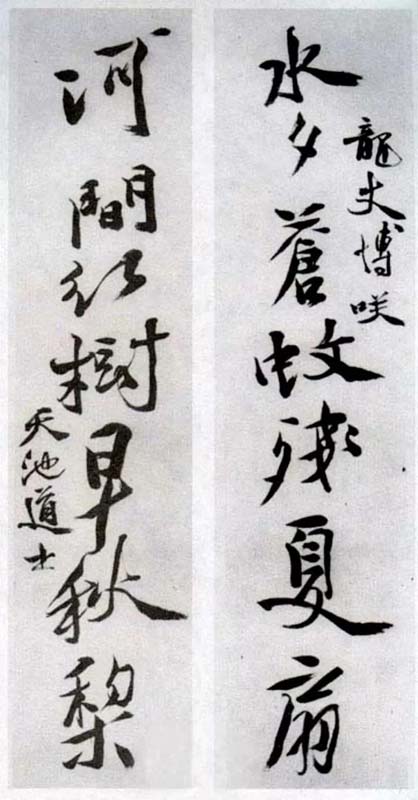 水夕蒼蚊殘夏扇
龍丈博咲
河間紅樹早秋梨
天池道士